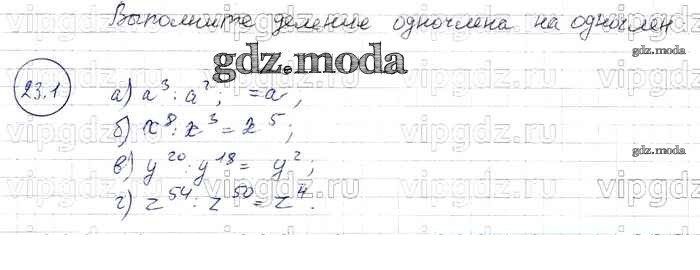 Выполните деление одночлена на одночлен
gdz.moda
gdz.moda
23.1
а) a³ : a² ; = a,
б) x⁸ : x³ = x⁵;
в) y²⁰ : y¹⁸ = y²;
gdz.moda
г) z⁵⁴ : z⁵⁰ = z⁴.
vipgdz.ru vipgdz.ru vipgdz.ru
vipgdz.ru vipgdz.ru vipgdz.ru